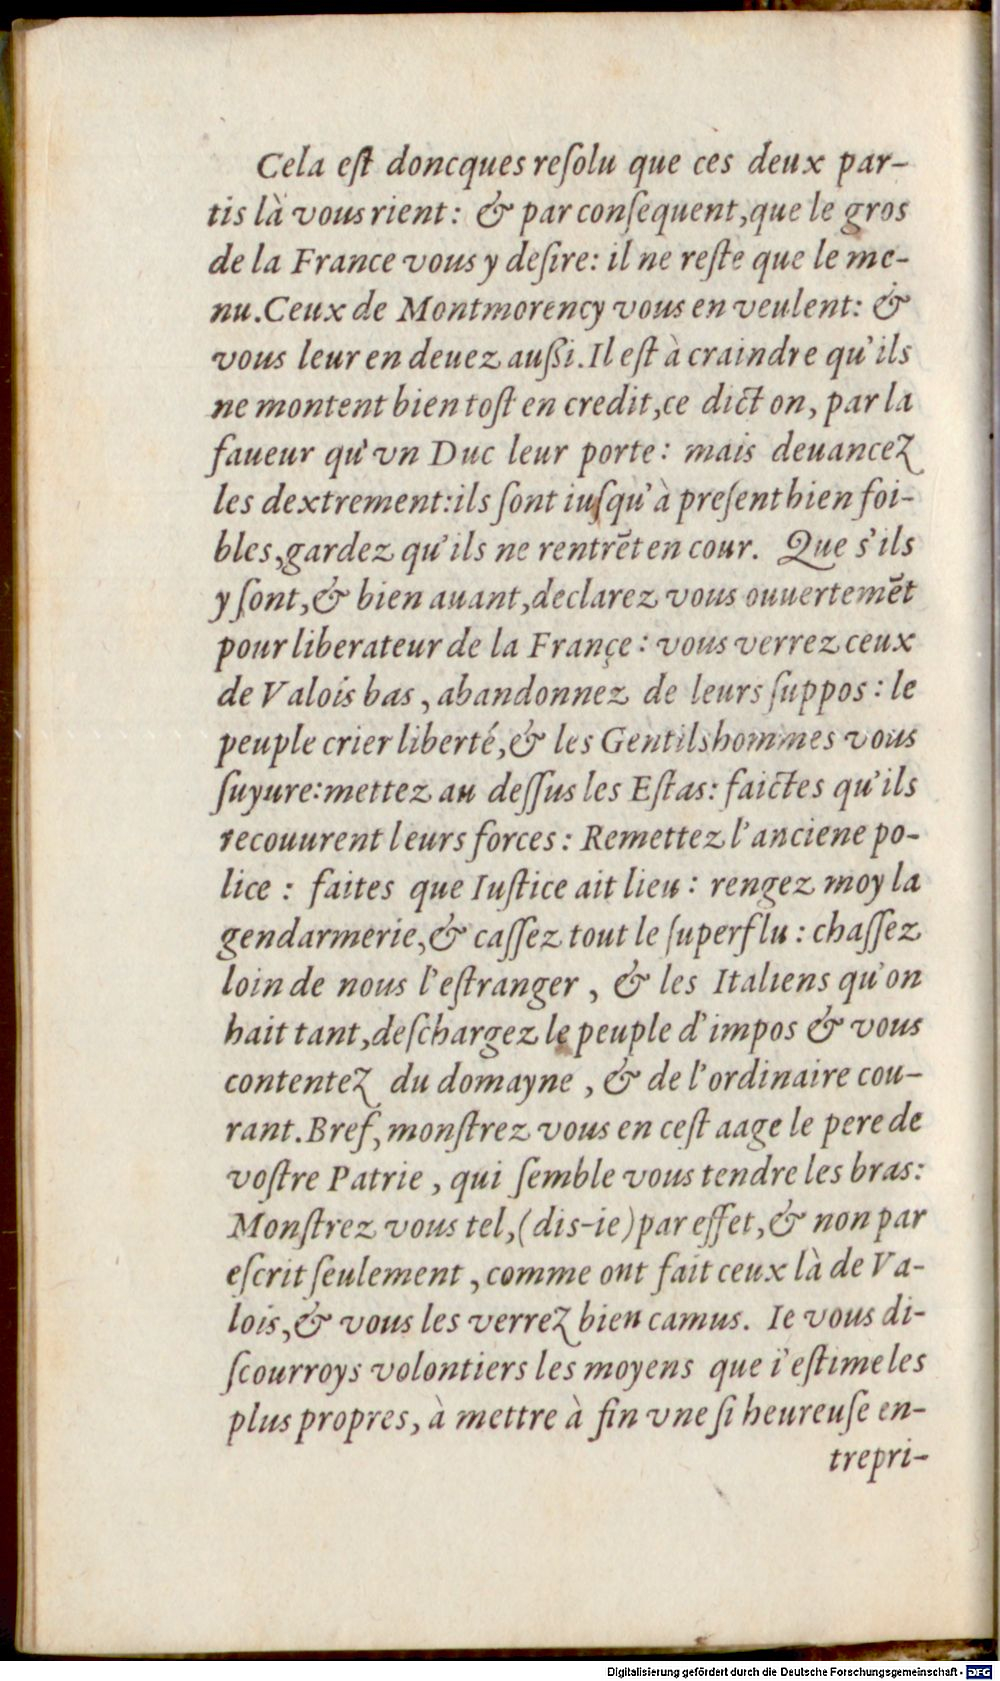 Cela eſt doncques reſolu que ces deux par-
tis là vous rient: & par conſequent, que le gros
de la France vous y deſire: il ne reſte que le me-
nu. Ceux de Montmorency vous en veulent: &
vous leur en deuez auſsi. Il eſt à craindre qu'ils
ne montent bien toſt en credit, ce dict on, par la
faueur qu'vn Duc leur porte: mais deuancez
les dextrement: ils ſont iuſqu'à preſent bien foi-
bles, gardez qu'ils ne rentrēt en cour. Que s'ils
y ſont, & bien auant, declarez vous ouuertemēt
pour liberateur de la Françe: vous verrez ceux
de Valois bas, abandonnez de leurs ſuppos: le
peuple crier liberté, & les Gentilshommes vous
ſuyure: mettez au deſſus les Eſtas: faictes qu'ils
recouurent leurs forces: Remettez l'anciene po-
lice: faites que Iuſtice ait lieu: rengez moy la
gendarmerie, & caſſez tout le ſuperflu: chaſſez
loin de nous l'eſtranger, & les Italiens qu'on
hait tant, deſchargez le peuple d'impos & vous
contentez du domayne, & de l'ordinaire cou-
rant. Bref, monſtrez vous en ceſt aage le pere de
voſtre Patrie, qui ſemble vous tendre les bras:
Monſtrez vous tel, (dis-ie) par effet, & non par
eſcrit ſeulement, comme ont fait ceux là de Va-
lois, & vous les verrez bien camus. Ie vous di-
ſcourroys volontiers les moyens que i'eſtime les
plus propres, à mettre à fin vne ſi heureuſe en-
trepri-
Digitalisierung gefördert durch die Deutsche Forschungsgemeinschaft - DFG